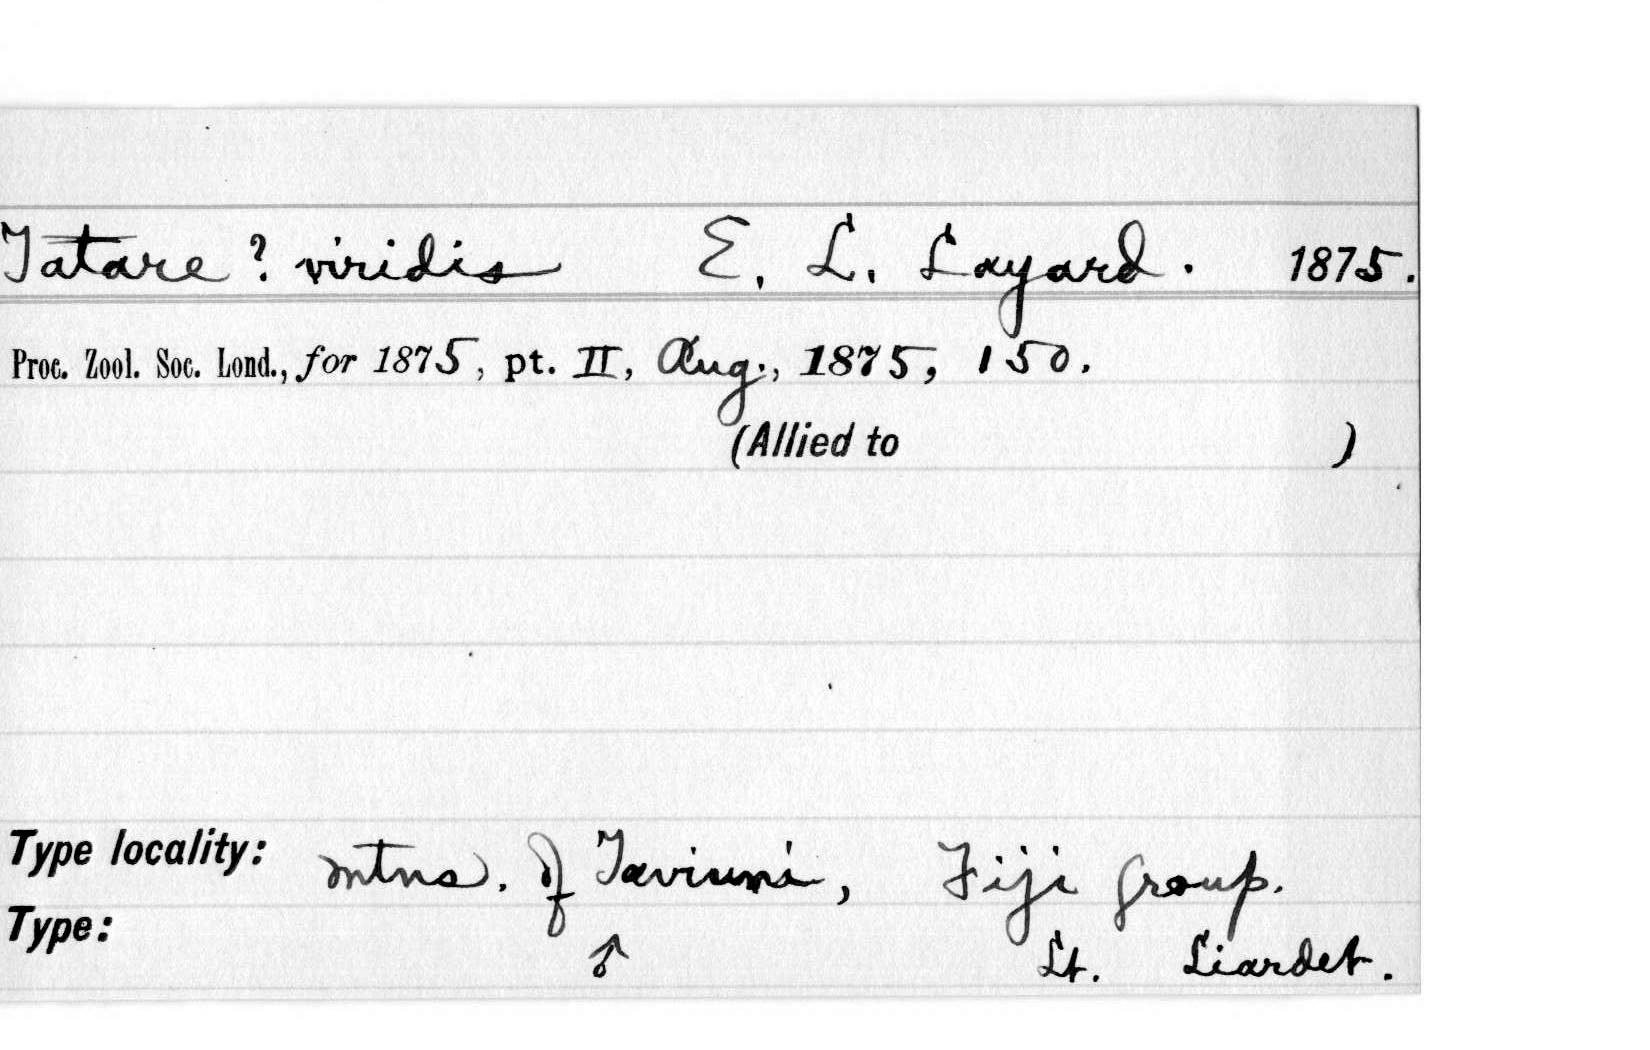 Tatare ? viridis E. L. Layard. 1875.
Proc. Zool. Soc. Lond., for 1875, pt. II, Aug., 1875, 150.
(Allied to )
Type locality: mtns. of Taviuni, Fiji group.
Type: ♂ Lt. Liardet.